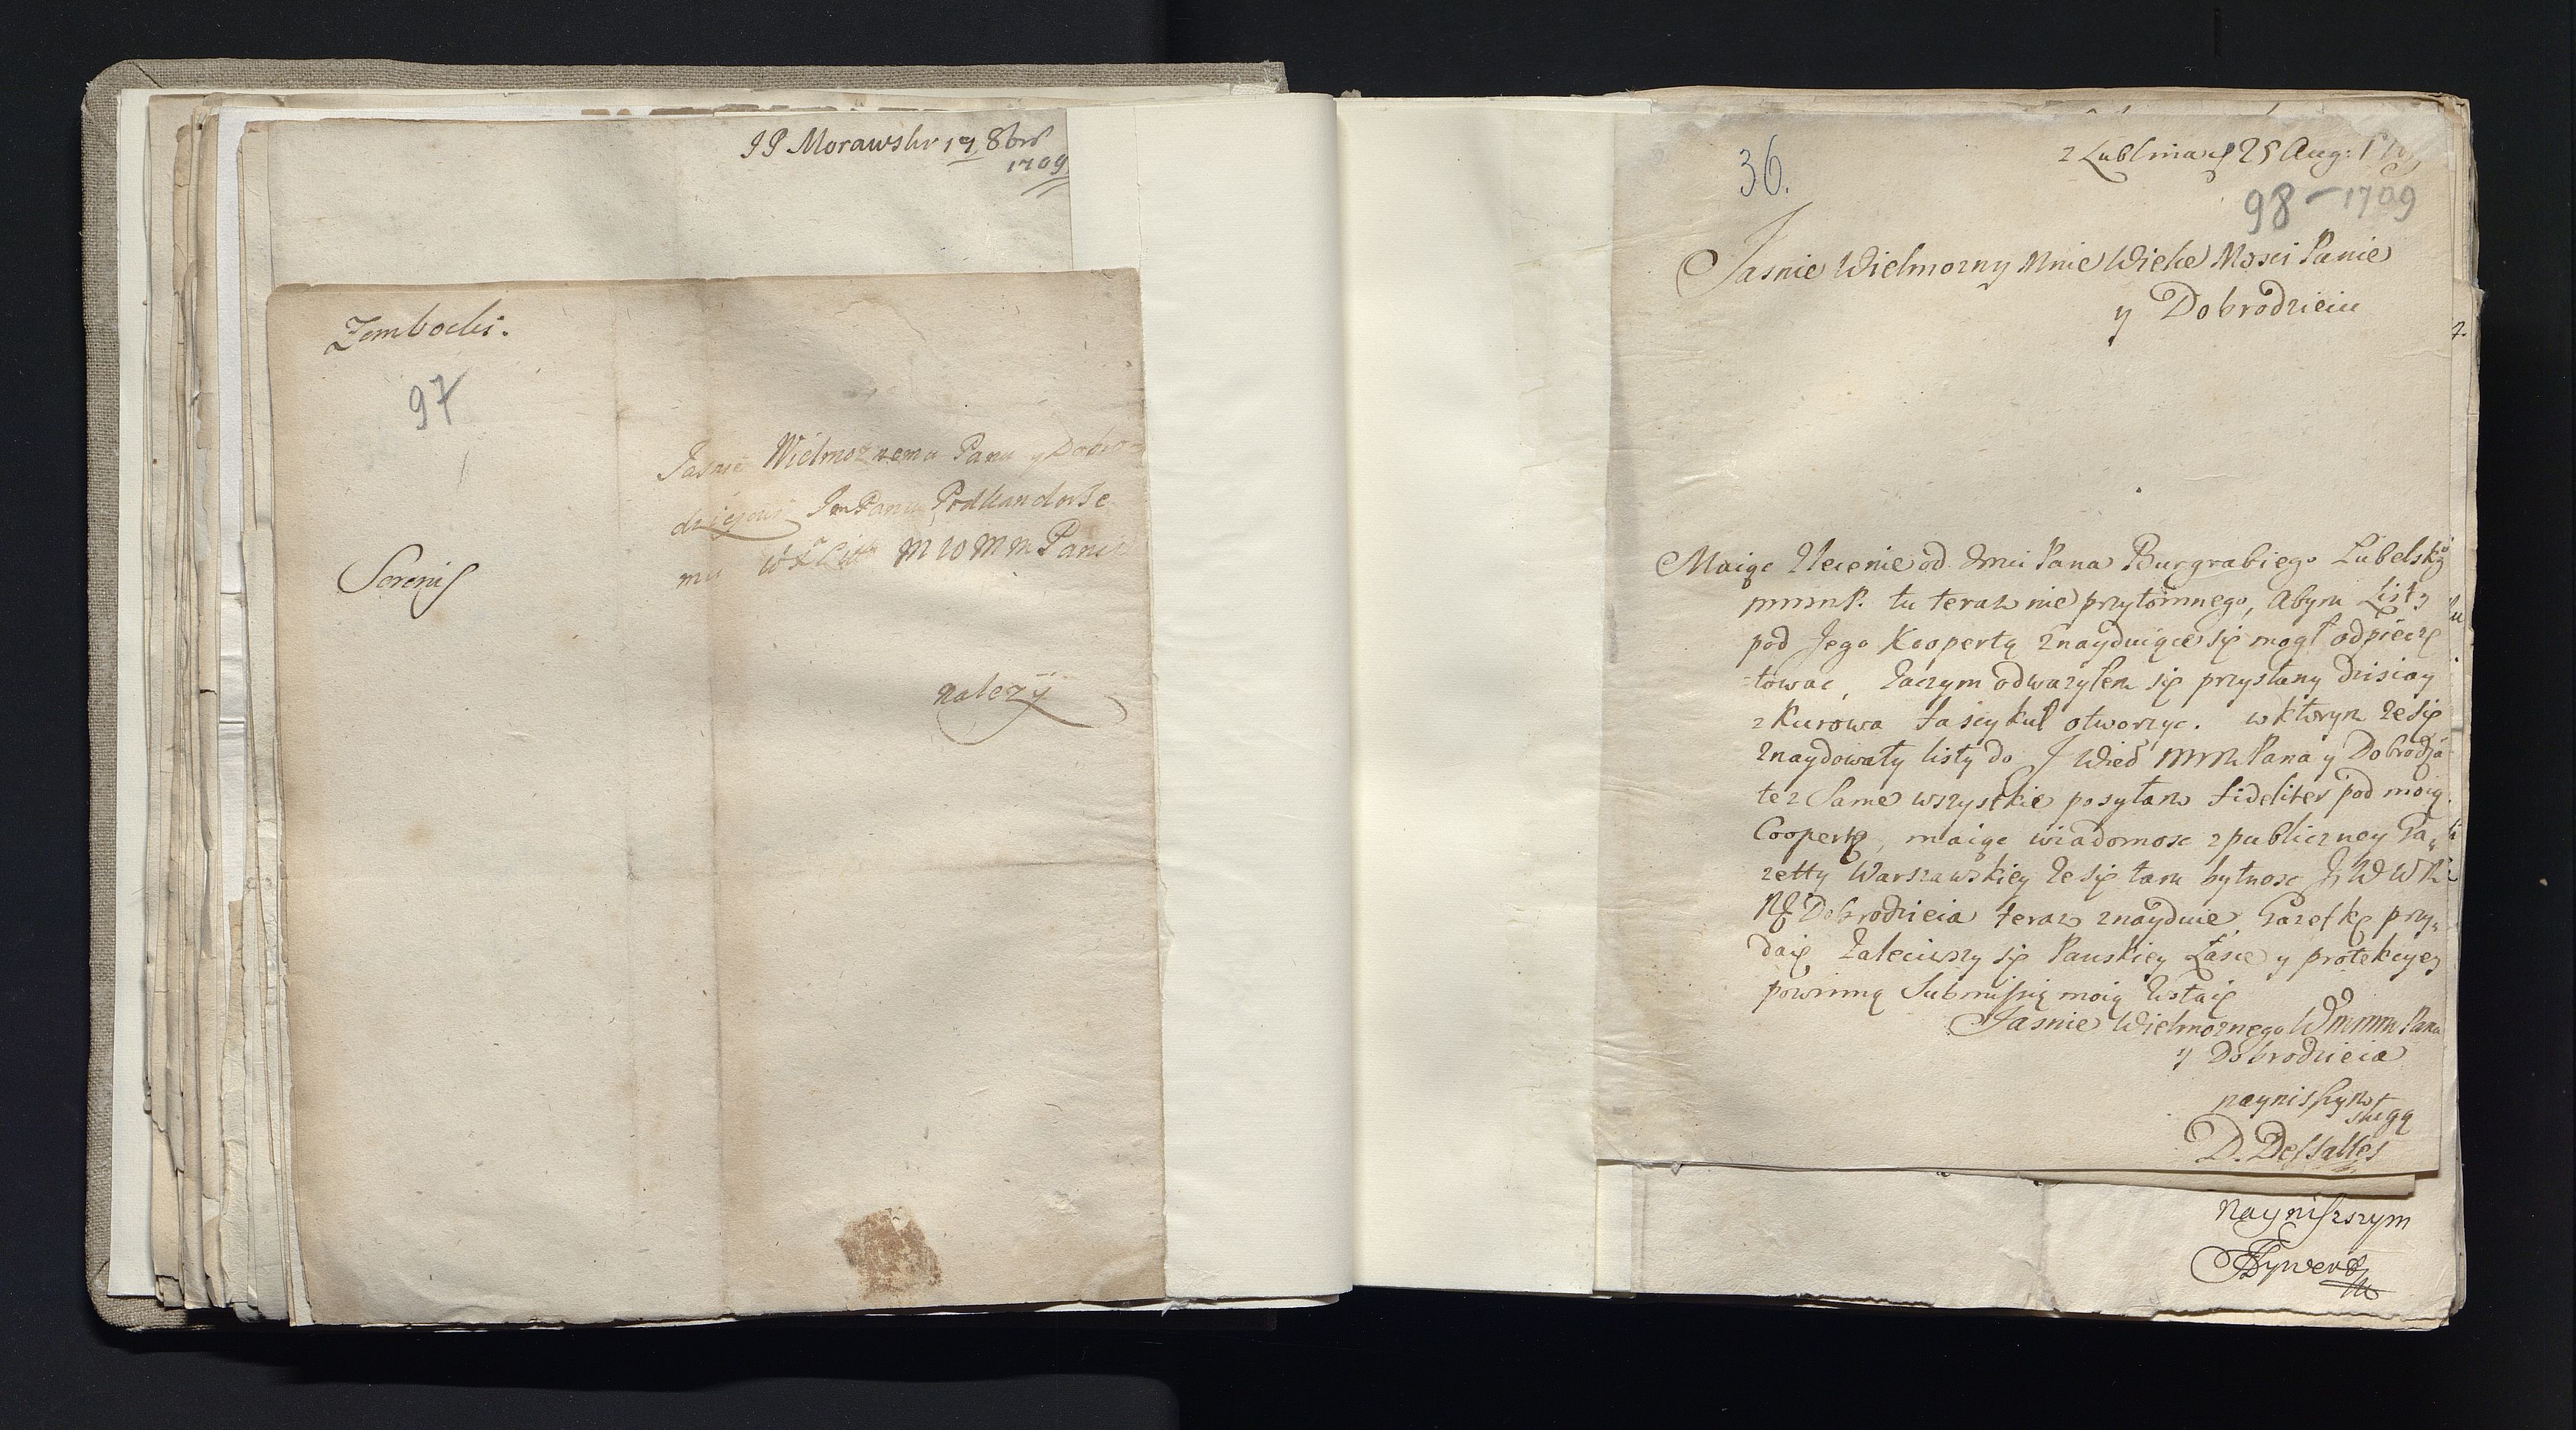 JP Morawski 19 8bris
1709
Zembocki.
97
Jasnie Wielmoznemu Panu y Dobro
dziejowi JmPanu Podkandorze
mu W X Litt M W M M Panu
Serenis
nalezÿ
36.
z Lublina d 25 Aug:
98 - 1709
Jasnie Wielmozny Mnie Wielce Mosci Panie
y Dobrodzieiu
Maiąc Zlecenie od Jmci Pana Burgrabiego Lubelsk
mmP. tu teraz nie przytomnego, Abym Listy
pod Jego Koopertą znayduiące się mogł odpieczę
-towac, Zaczym odwazyłem się przysłany dzisiay
z Kurowa fascykuł otworzyc. w ktorym ze się
znaydowały listy do J Wied MMM Pana y Dobrodza
tez same wszystkie posyłam fideliter pod moią
Coopertą, maiąc wiadomosc z publiczney Ga,,
zetty Warszawskiey ze się tam bytnosc J W W M
Dobrodzieia teraz znayduie, Gazetkę przy,,
daię Zaleciwszy się Panskiey Łasce y protekcyey
powinną Submissią moią Zostaię
Jasnie Wielmoznego W mmm Pana
y Dobrodzieia
naynisszym
sługą
D. Dessalles
Nayniszszym